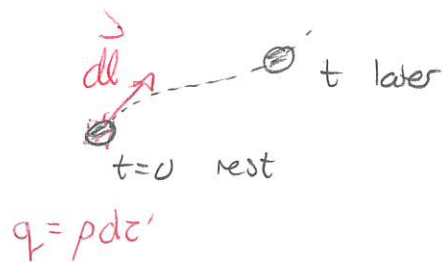 dl
t later
t=0 rest
q = ρdτ'